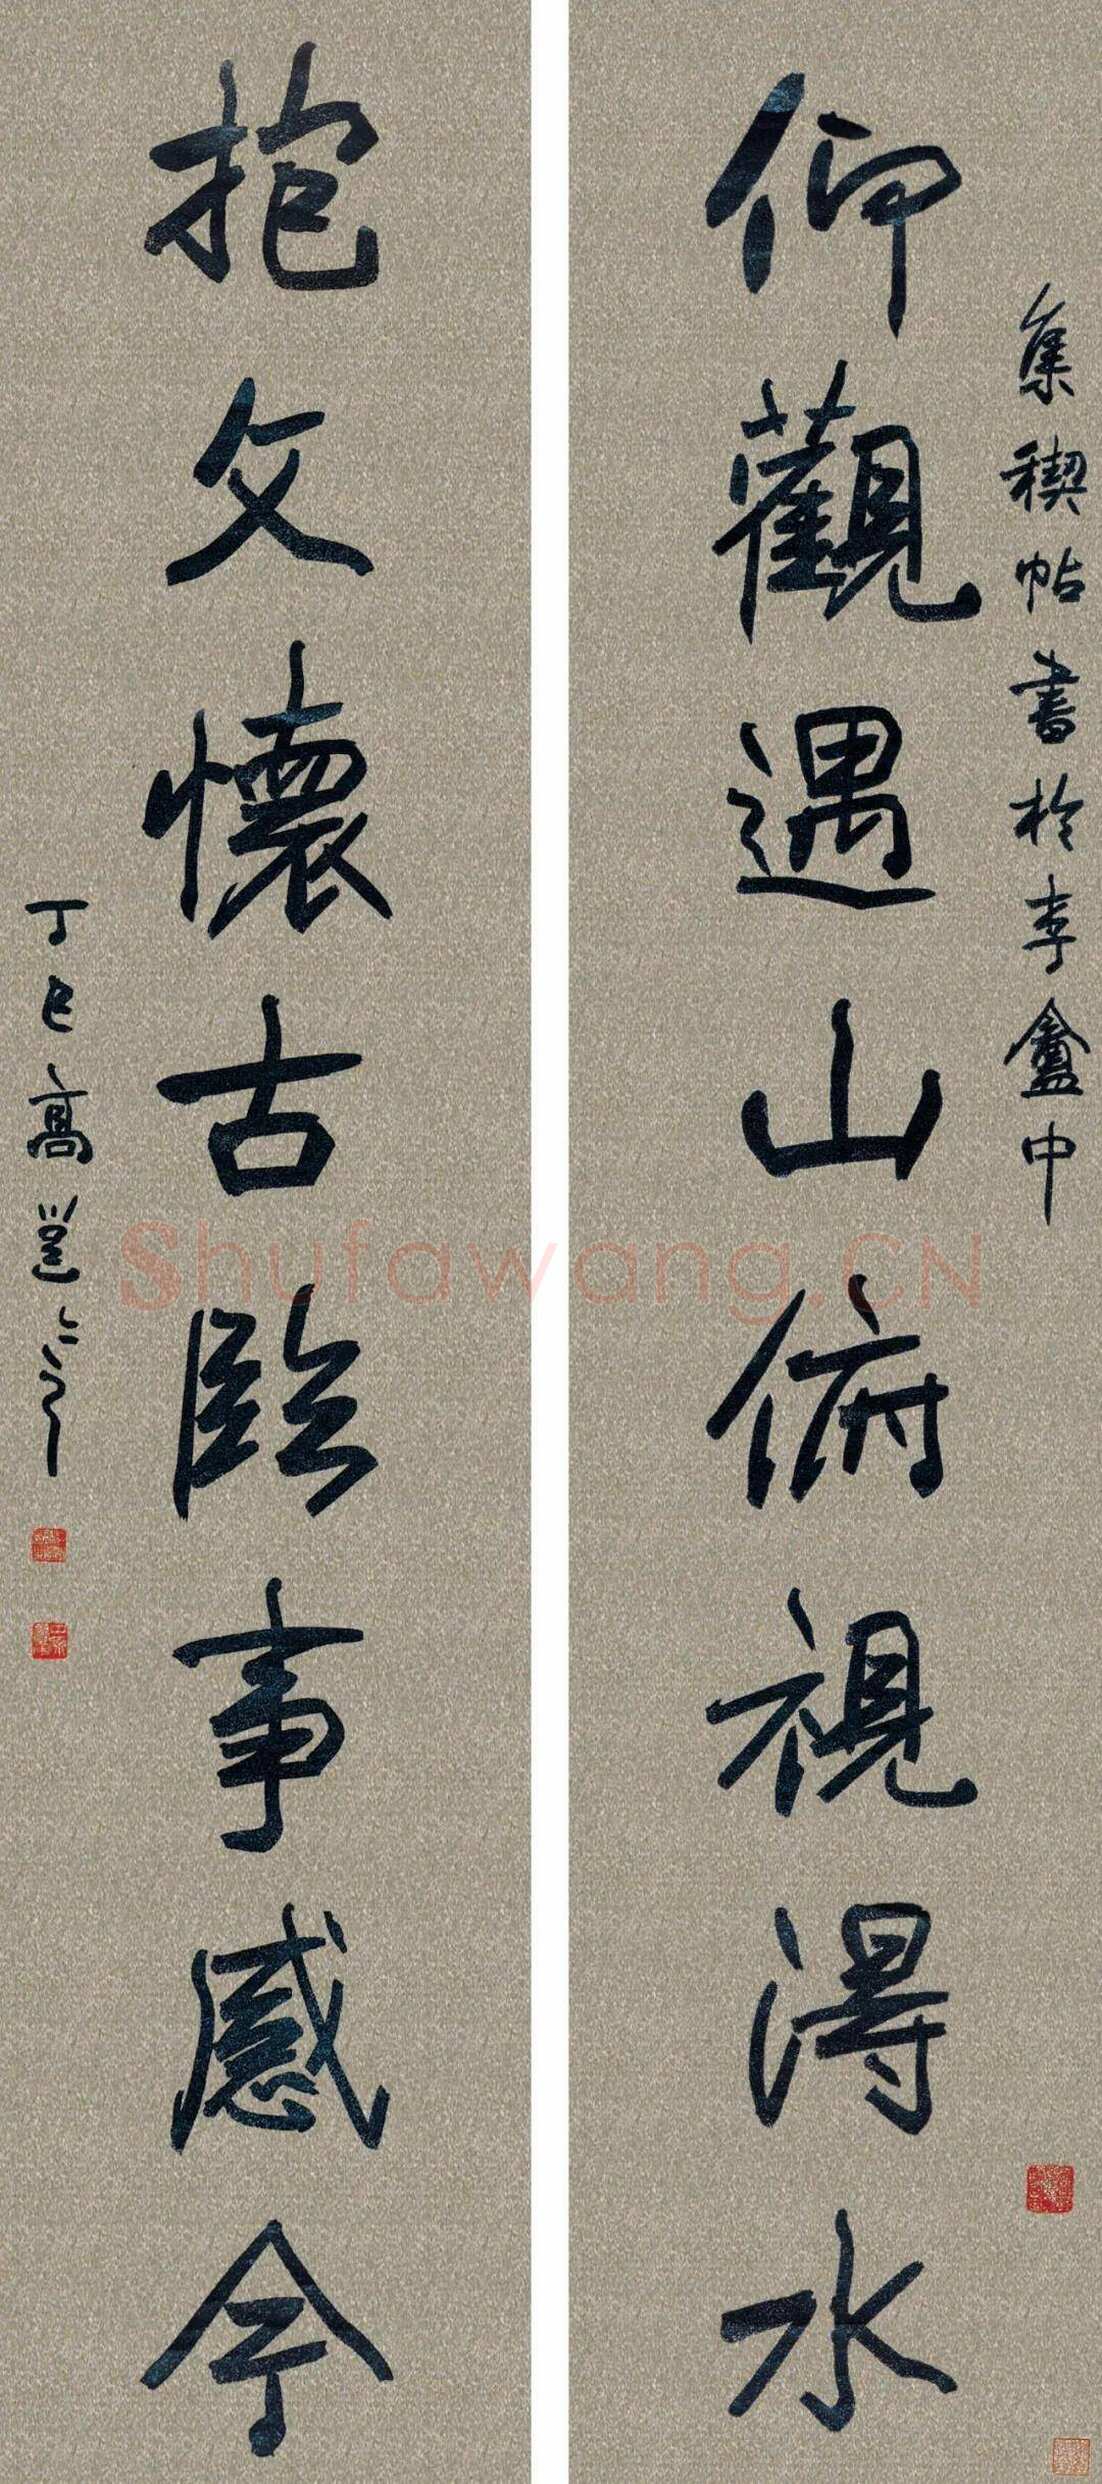 集禊帖書於李盦中
仰觀遇山俯視得水
抱文懷古臨事感今
丁巳高邕